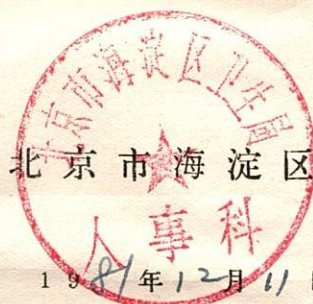 北京市海淀区卫生局
北京市海淀区
人事科
1981年12月11日